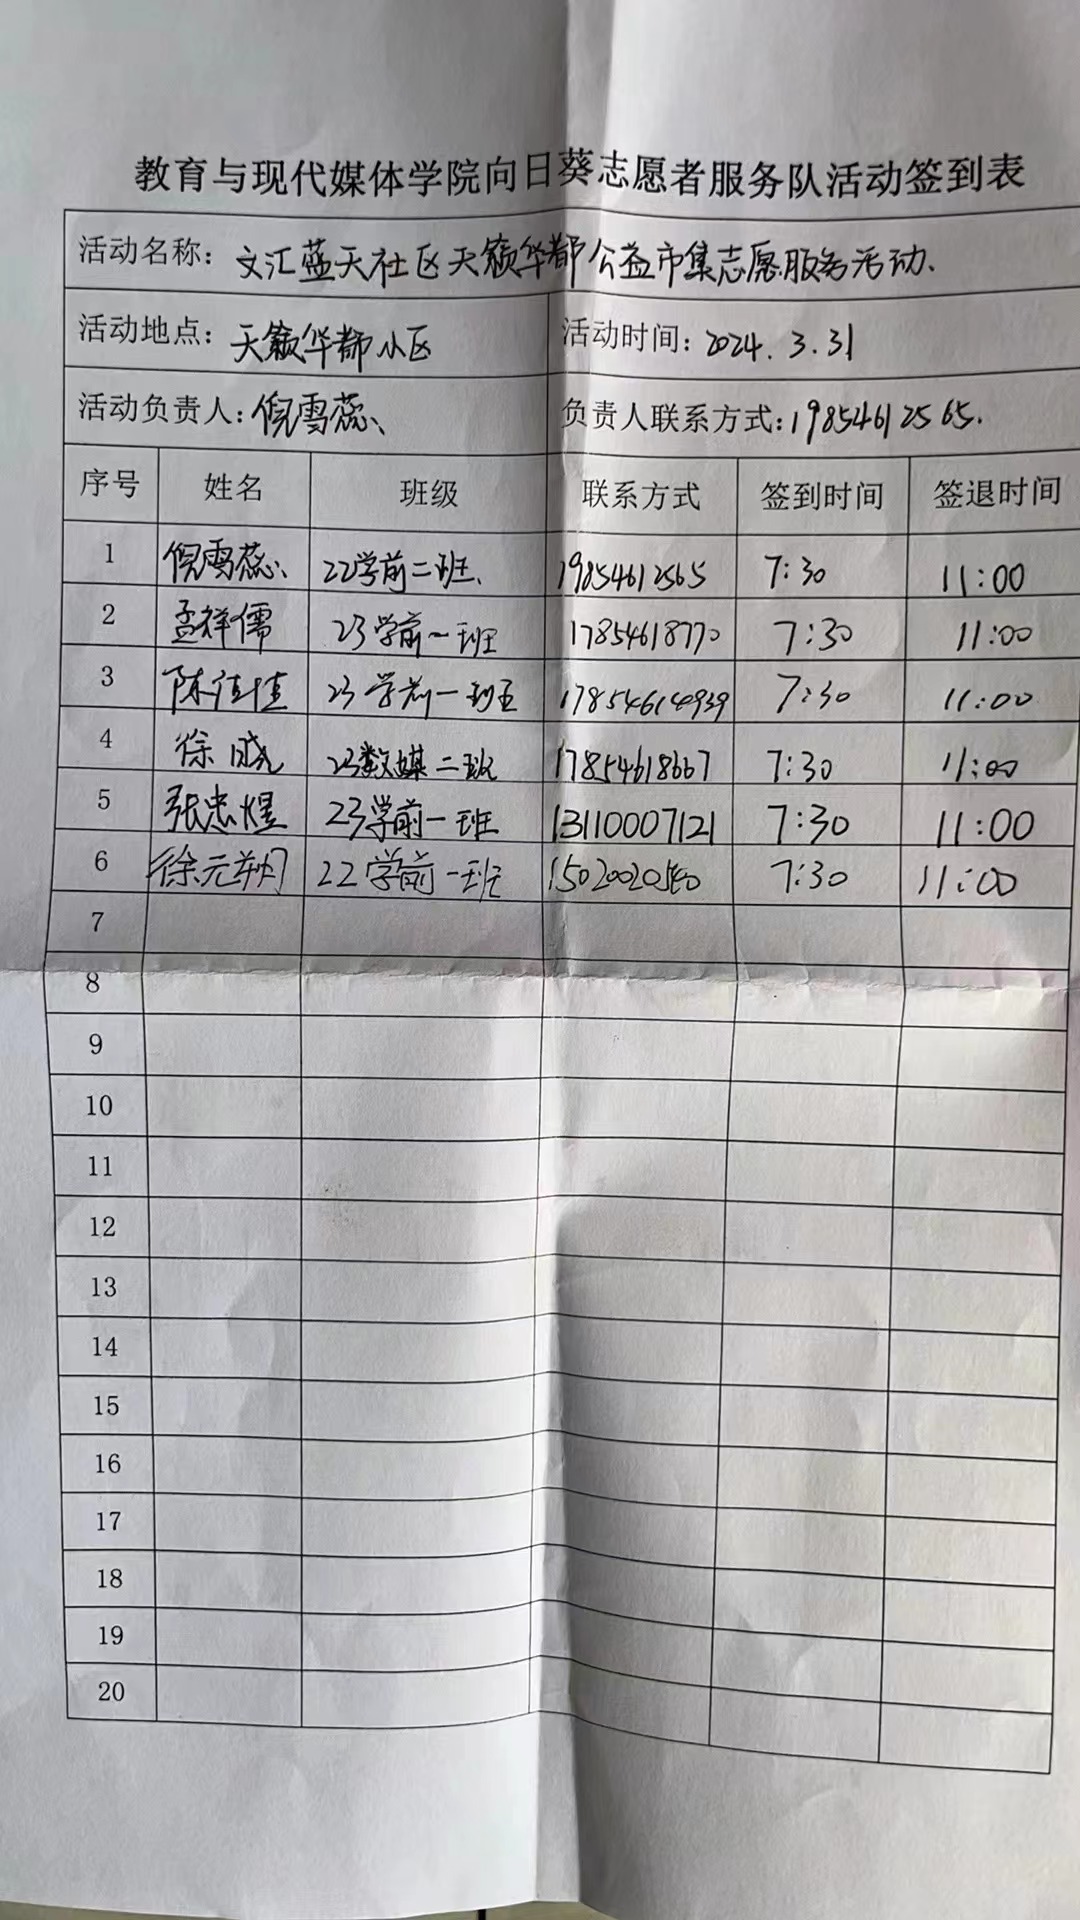 教育与现代媒体学院向日葵志愿者服务队活动签到表
活动名称：文汇蓝天社区天籁华都公益市集志愿服务活动.
活动地点：天籁华都小区 活动时间：2024.3.31
活动负责人：倪雪蕊、 负责人联系方式：19854612565.
序号 姓名 班级 联系方式 签到时间 签退时间
1 倪雪蕊、 22学前二班、 19854612565 7:30 11:00
2 孟祥儒 23学前一班 17854618770 7:30 11:00
3 陈佳佳 23学前一班 17854614939 7:30 11:00
4 徐晓 23数媒二班 17854618667 7:30 11:00
5 张忠煜 23学前一班 13110007121 7:30 11:00
6 徐元 22学前一班 7:30 11:00
7
8
9
10
11
12
13
14
15
16
17
18
19
20